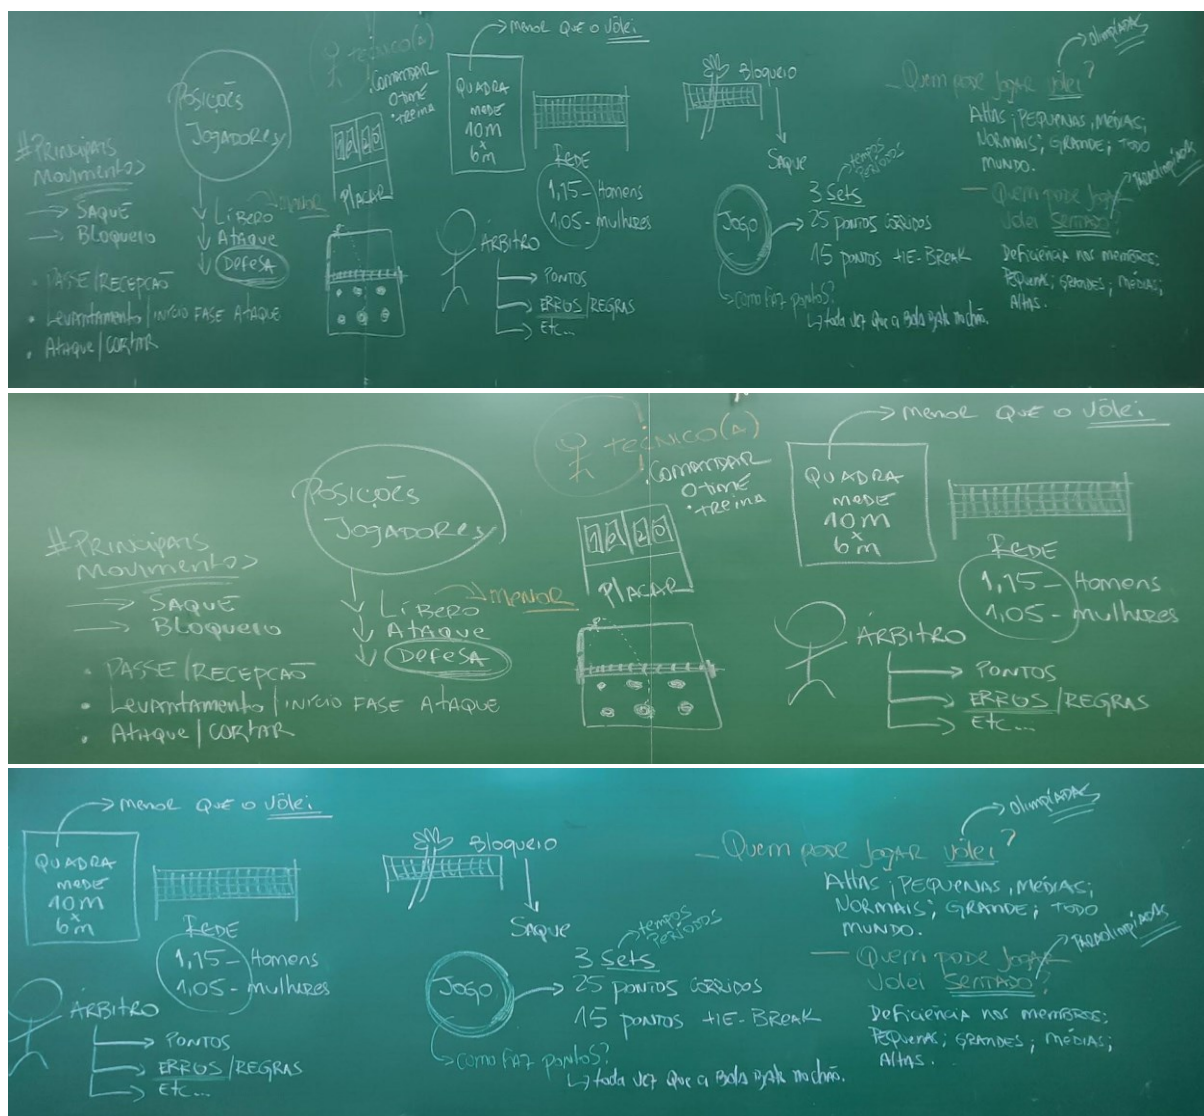 # PRINCIPAIS
Movimentos
→ SAQUE
→ Bloqueio
• PASSE/RECEPÇÃO
• Levantamento/INÍCIO FASE ATAQUE
• Ataque/CORTAR
POSIÇÕES
JOGADORES
LÍBERO → MENOR
ATAQUE
DEFESA
TÉCNICO(A)
.COMANDAR
O TIME
•TREINA
PLACAR
→ menor QUE o Vôlei
QUADRA
mede
10m
x
6m
REDE
1,15 – Homens
1,05 – mulheres
ÁRBITRO
→ PONTOS
→ ERROS/REGRAS
→ Etc...
Bloqueio
Saque
JOGO
tempos
PERÍODOS
3 Sets
25 PONTOS CORRIDOS
15 PONTOS TIE-BREAK
→ como FAZ pontos?
↳ toda vez que a Bola Bate no chão.
→ Olimpíadas
– Quem pode Jogar vôlei?
Altas; PEQUENAS, MÉDIAS;
NORMAIS; GRANDE; TODO
MUNDO.
PARAOLIMPÍADAS
– Quem pode Jogar
Volei SENTADO?
Deficiência nos membros;
PEQUENAS; GRANDES; MÉDIAS;
Altas.
# PRINCIPAIS
Movimentos
→ SAQUE
→ Bloqueio
• PASSE/RECEPÇÃO
• Levantamento/INÍCIO FASE ATAQUE
• Ataque/CORTAR
POSIÇÕES
JOGADORES
LÍBERO → MENOR
ATAQUE
DEFESA
TÉCNICO(A)
.COMANDAR
O TIME
•TREINA
PLACAR
→ menor QUE o Vôlei
QUADRA
mede
10m
x
6m
REDE
1,15 – Homens
1,05 – mulheres
ÁRBITRO
→ PONTOS
→ ERROS/REGRAS
→ Etc...
→ menor QUE o Vôlei
QUADRA
mede
10m
x
6m
REDE
1,15 – Homens
1,05 – mulheres
ÁRBITRO
→ PONTOS
→ ERROS/REGRAS
→ Etc...
Bloqueio
Saque
JOGO
tempos
PERÍODOS
3 Sets
25 PONTOS CORRIDOS
15 PONTOS TIE-BREAK
→ como FAZ pontos?
↳ toda vez que a Bola Bate no chão.
→ Olimpíadas
– Quem pode Jogar vôlei?
Altas; PEQUENAS, MÉDIAS;
NORMAIS; GRANDE; TODO
MUNDO.
PARAOLIMPÍADAS
– Quem pode Jogar
Volei SENTADO?
Deficiência nos membros;
PEQUENAS; GRANDES; MÉDIAS;
Altas.